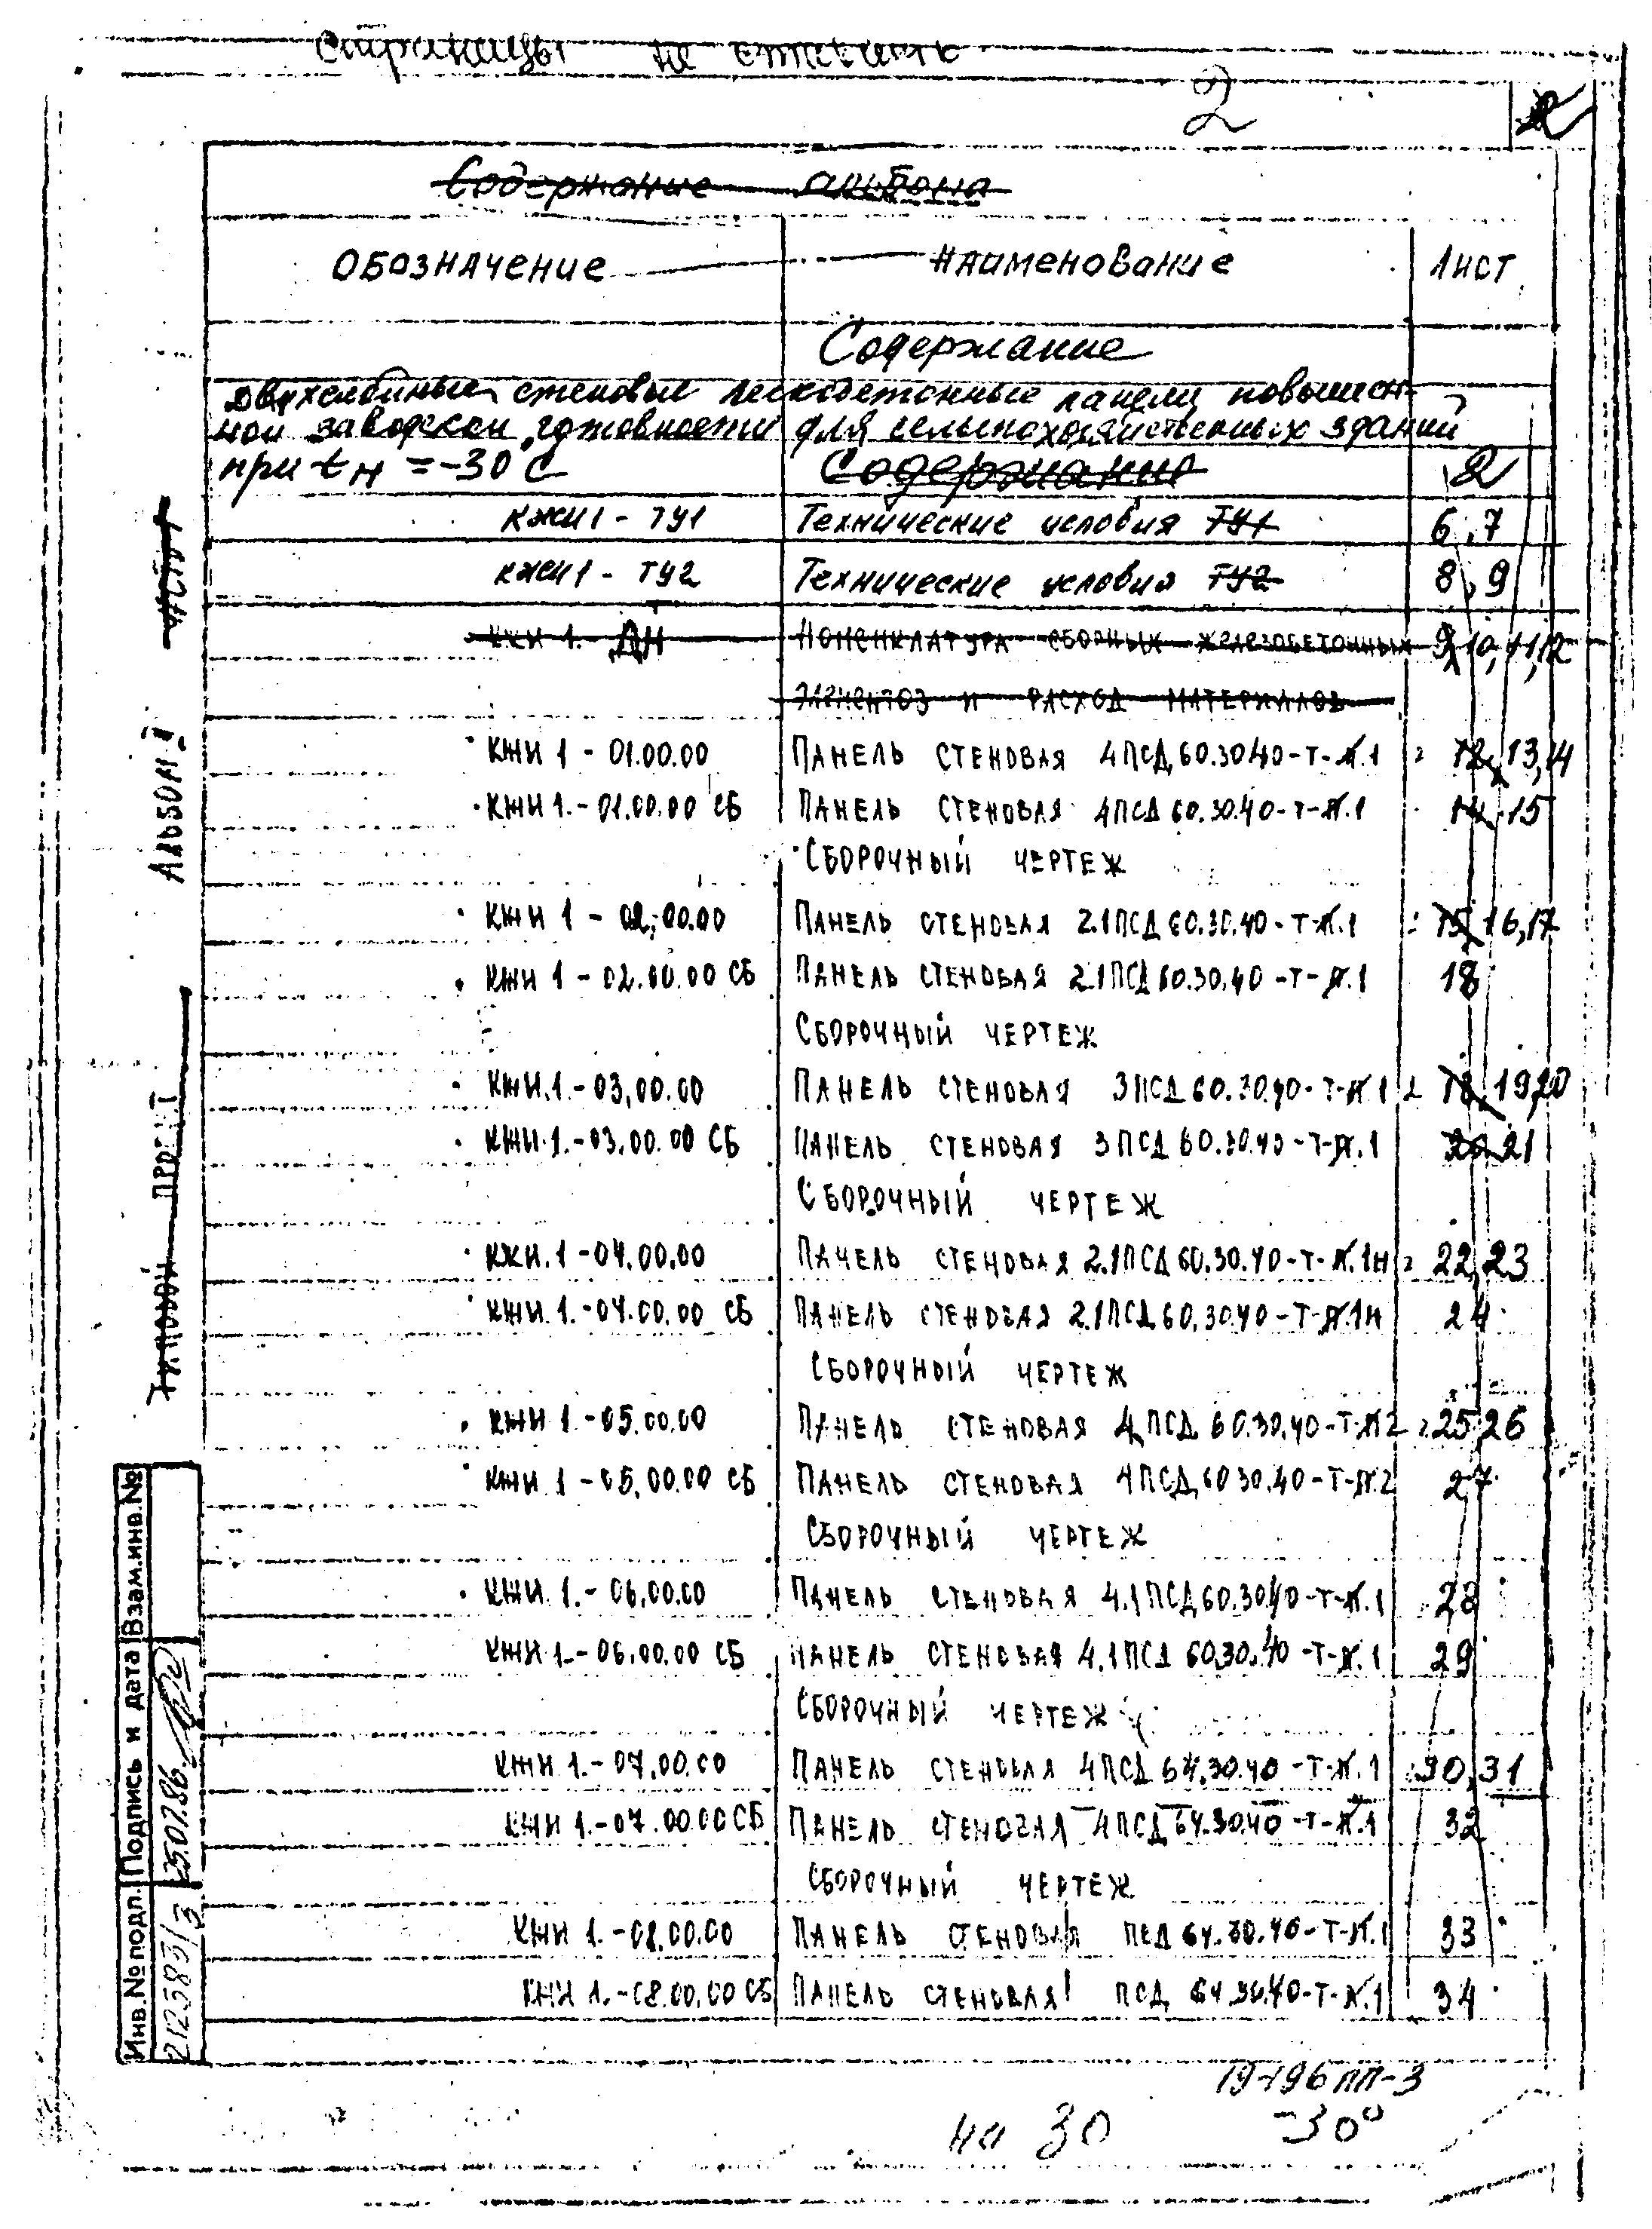 Страницы не
2
Содержание альбома
Обозначение Наименование Лист
Содержание
Двухслойные стеновые легкобетонные панели повышен-
ной заводской готовности для сельскохозяйственных зданий
при tн = -30°С Содержание 2
КЖИ1 - ТУ1 Технические условия ТУ1 6,7
КЖИ1 - ТУ2 Технические условия ТУ2 8,9
КЖИ 1. - ДН Номенклатура сборных железобетонных 9, 10, 11, 12
элементов и расход материалов
КЖИ 1 - 01.00.00 Панель стеновая 4ПСД 60.30.40-Т-П.1 12, 13, 14
КЖИ 1. - 01.00.00 СБ Панель стеновая 4ПСД 60.30.40-Т-П.1 14, 15
Сборочный чертеж
КЖИ 1 - 02.00.00 Панель стеновая 2.1ПСД 60.30.40-Т-П.1 15, 16, 17
КЖИ 1 - 02.00.00 СБ Панель стеновая 2.1ПСД 60.30.40-Т-П.1 18
Сборочный чертеж
КЖИ.1. - 03.00.00 Панель стеновая 3ПСД 60.30.40-Т-П.1 18, 19, 20
КЖИ.1. - 03.00.00 СБ Панель стеновая 3ПСД 60.30.40-Т-П.1 20, 21
Сборочный чертеж
КЖИ.1 - 04.00.00 Панель стеновая 2.1ПСД 60.30.40-Т-П.1н 22, 23
КЖИ 1. - 04.00.00 СБ Панель стеновая 2.1ПСД 60.30.40-Т-П.1н 24
Сборочный чертеж
КЖИ 1. - 05.00.00 Панель стеновая 4ПСД 60.30.40-Т-П.2 25, 26
КЖИ 1 - 05.00.00 СБ Панель стеновая 4ПСД 60.30.40-Т-П.2 27
Сборочный чертеж
КЖИ 1. - 06.00.00 Панель стеновая 4.1ПСД 60.30.40-Т-П.1 28
КЖИ 1. - 06.00.00 СБ Панель стеновая 4.1ПСД 60.30.40-Т-П.1 29
Сборочный чертеж
КЖИ 1. - 07.00.00 Панель стеновая 4ПСД 64.30.40-Т-П.1 30, 31
КЖИ 1. - 07.00.00 СБ Панель стеновая 4ПСД 64.30.40-Т-П.1 32
Сборочный чертеж
КЖИ 1. - 08.00.00 Панель стеновая ПСД 64.30.40-Т-П.1 33
КЖИ 1. - 08.00.00 СБ Панель стеновая ПСД 64.30.40-Т-П.1 34
Типовой проект Альбом I
Инв.№ подл. Подпись и дата Взам.инв.№
212583/3 25.07.86
19-196ПП-3
на 30 -30°